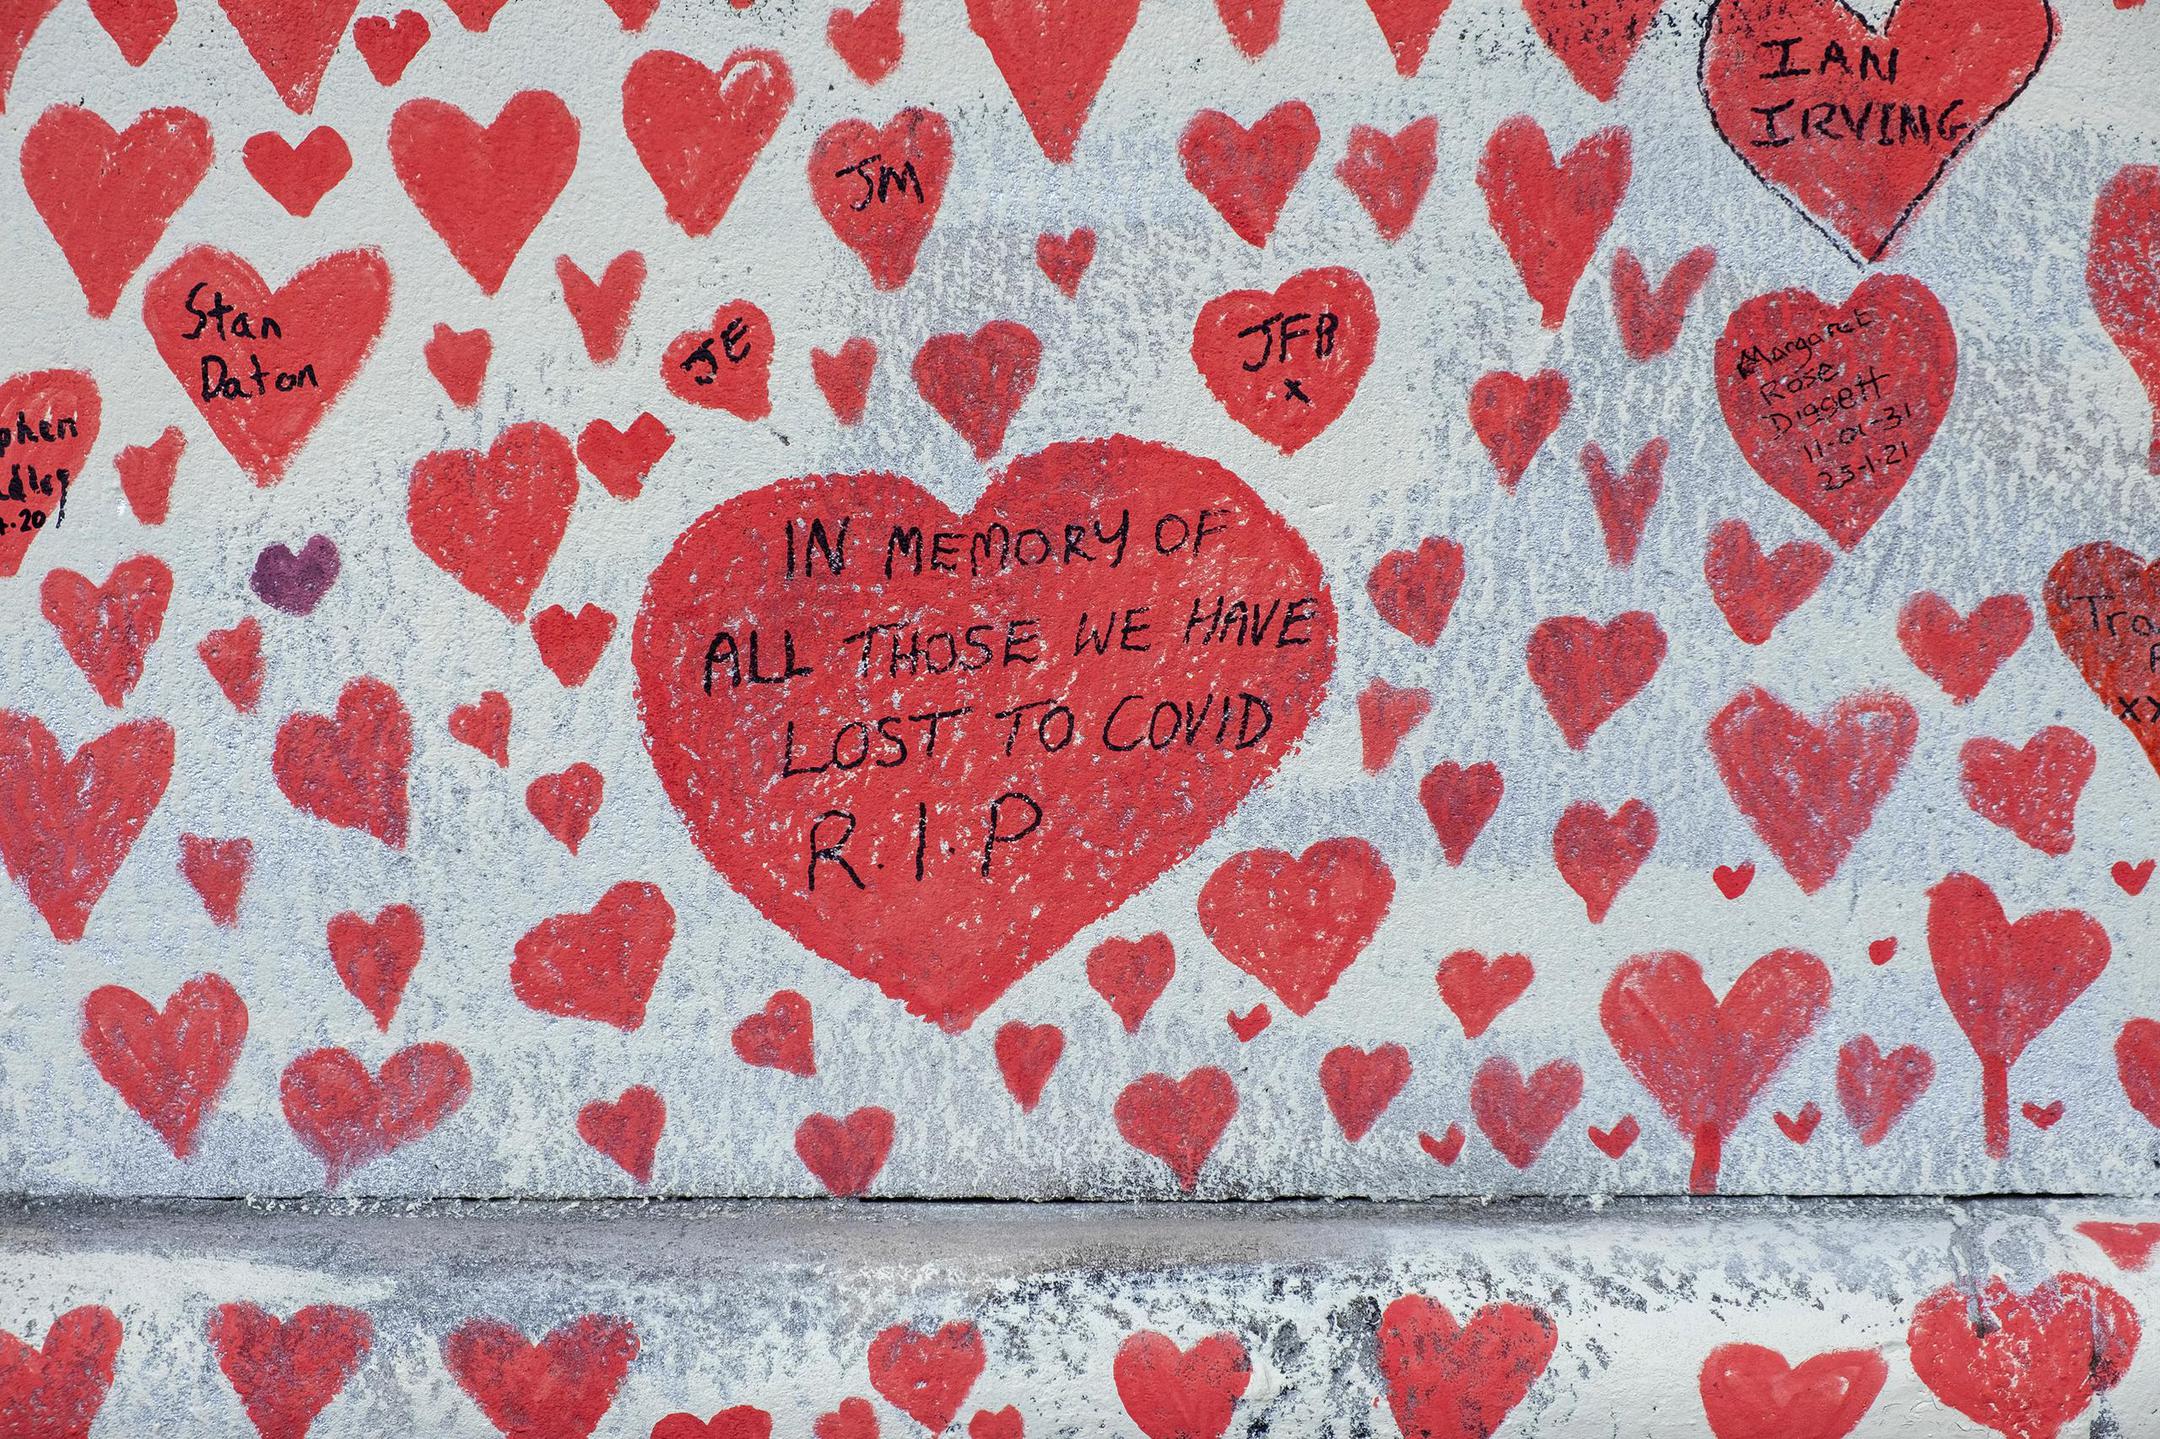 IAN
IRVING
JM
Stan
Daton
JE
JFB
x
Margaret
Rose
Diggett
11-01-31
25-1-21
phen
dley
.20
IN MEMORY OF
ALL THOSE WE HAVE
LOST TO COVID
R.I.P
Tra
xx